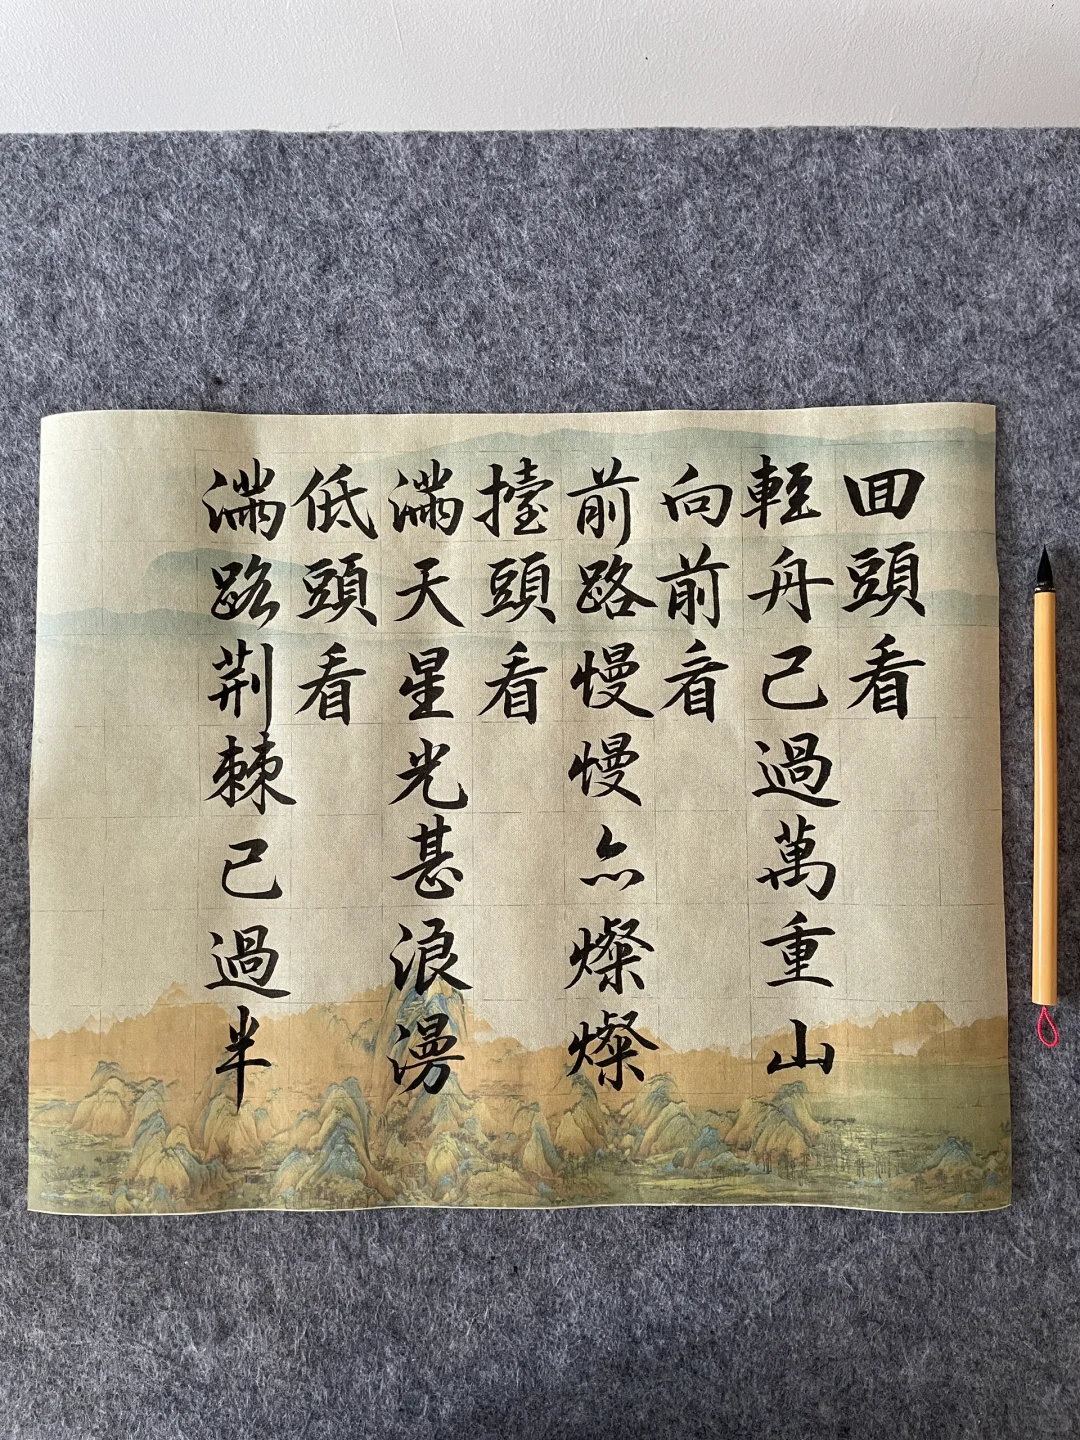 回頭看
輕舟已過萬重山
向前看
前路慢慢亦燦燦
擡頭看
滿天星光甚浪漫
低頭看
滿路荆棘已過半